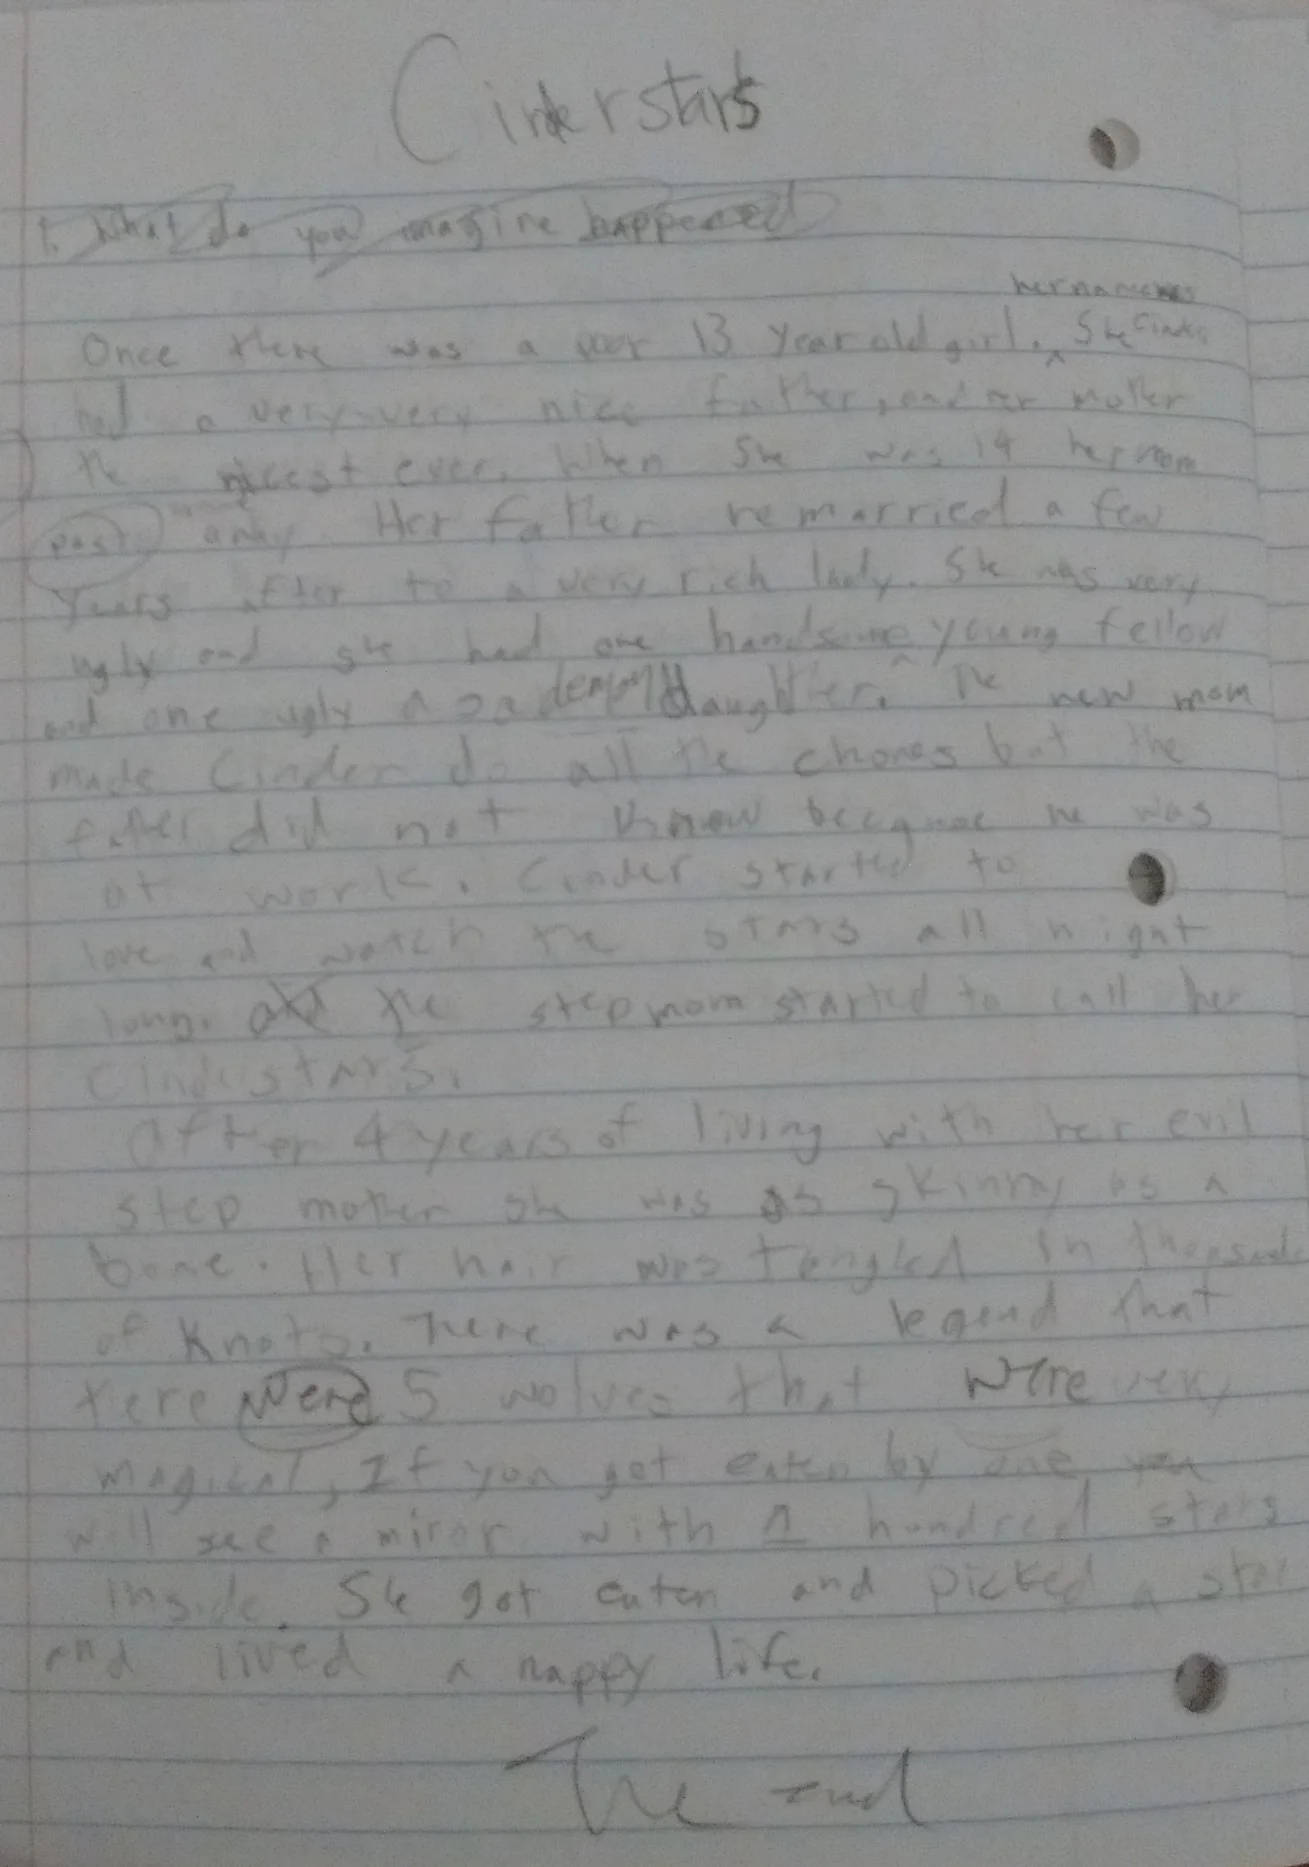 Cinderstars
1. What do you imagine happened
her name was
Once there was a poor 13 year old girl. ^ She Cinder
had a very very nice father, and her mother
the nicest ever. When she was 14 her mom
past away. Her father remarried a few
years after to a very rich lady. She was very
ugly and she had one handsome young fellow
and one ugly daughter. The new mom
made Cinder do all the chores but the
father did not know because he was
at work. Cinder started to
love and watch the stars all night
long. the step mom started to call her
Cindustars.
After 4 years of living with her evil
step mother she was as skinny as a
bone. Her hair was tangled in thousands
of knots. There was a legend that
tere were 5 wolves that were very
magical, If you got eaten by one you
will see a miror with 1 hundred stars
inside. She got eaten and picked a star
and lived a happy life.
The end